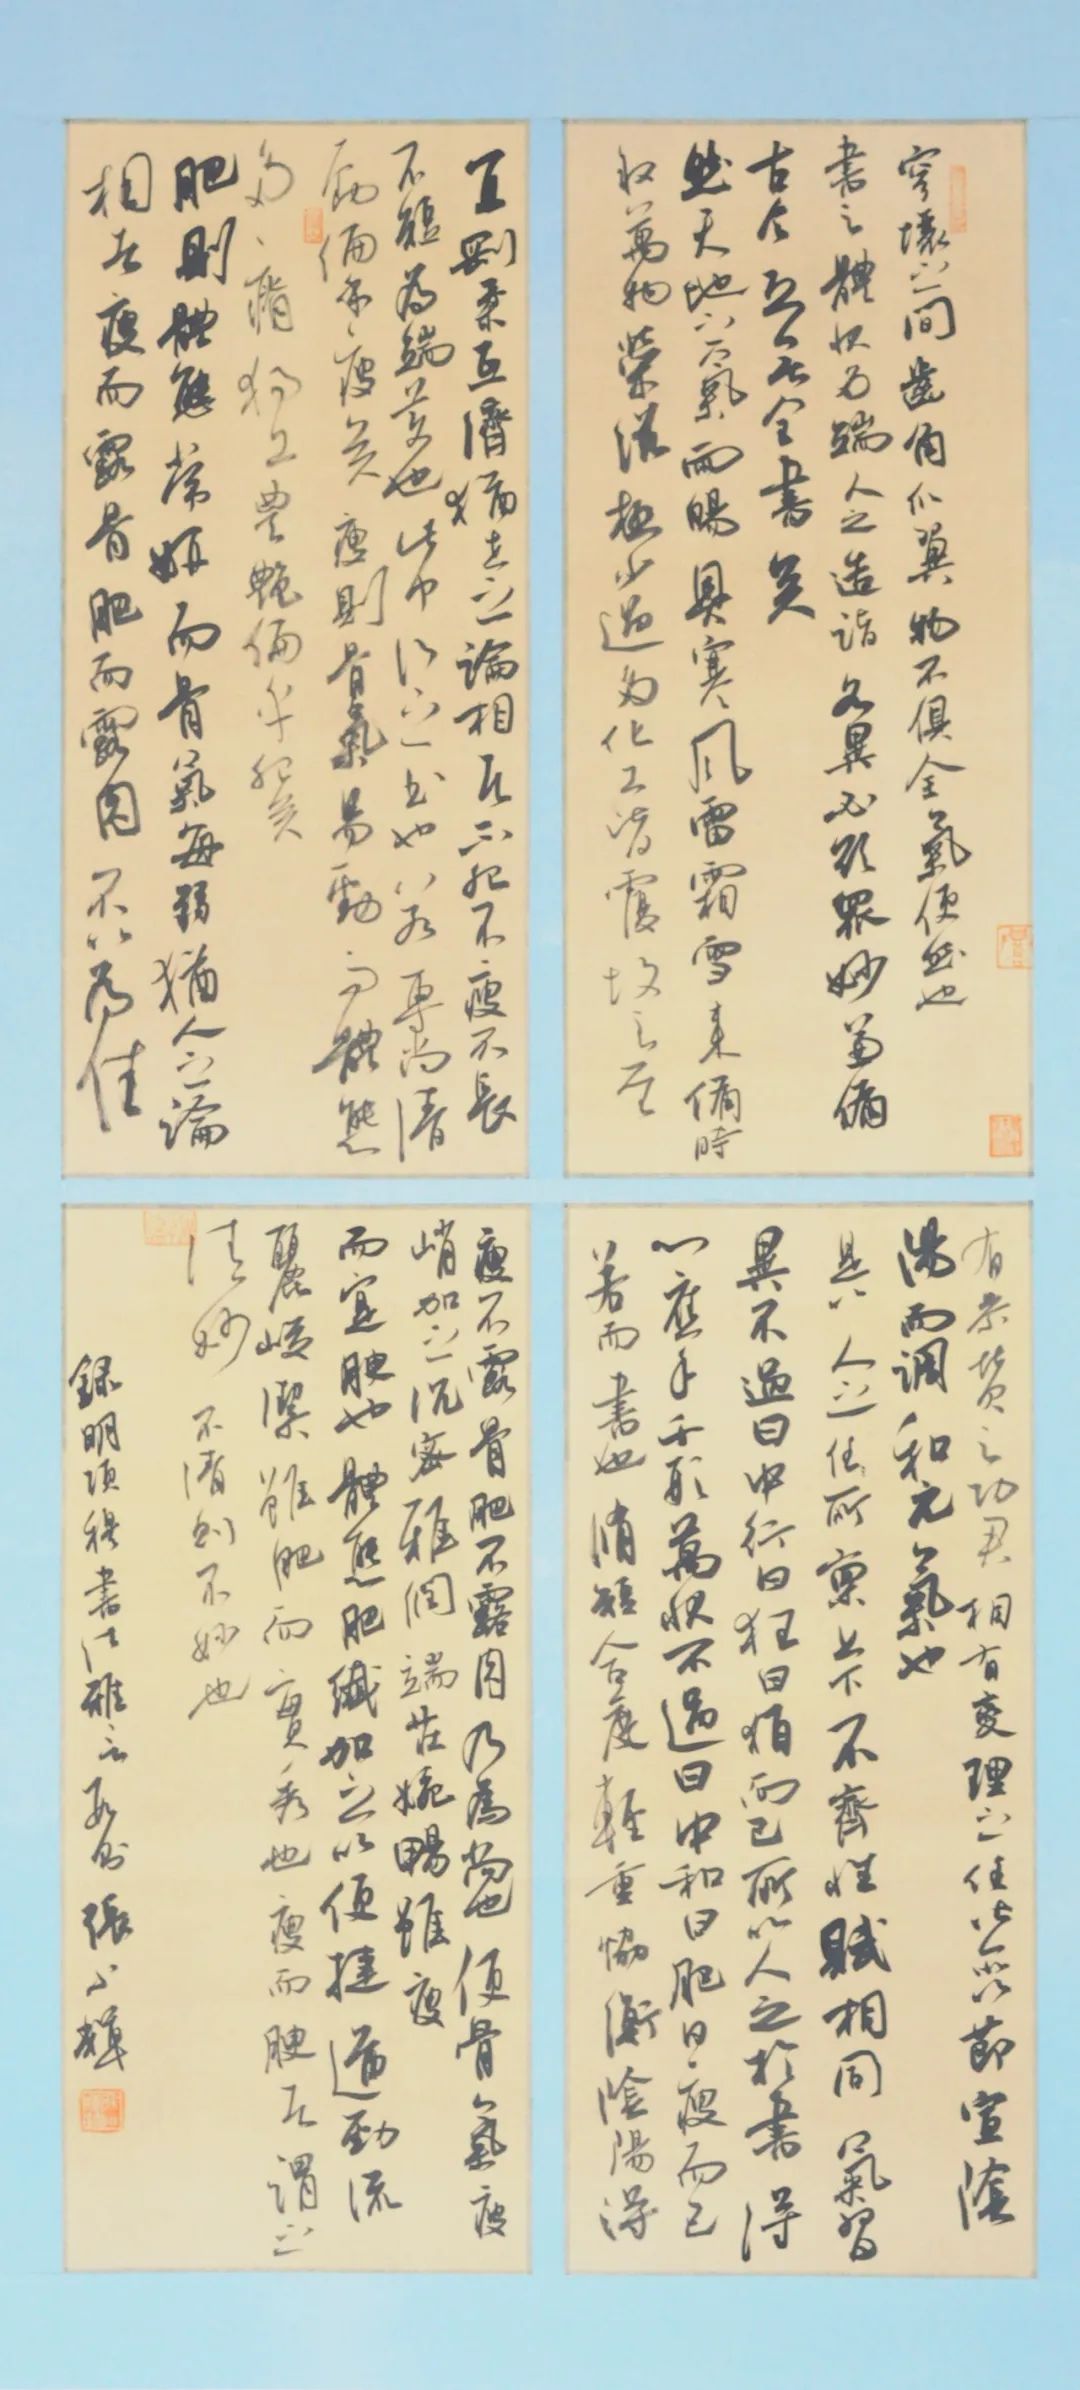 穹壤之間齒角爪翼物不俱全氣使然也
書之體狀多端人之造詣各異必欲眾妙兼備
古今恐無全書矣
然天地之氣雨暘奧寒風雷霜雪來備時
叙萬物榮滋極少過多化工皆覆故之至
有參贊之功君相有燮理之任皆所以節宣陰
陽而調和元氣也
是以人之任所稟上下不齊性賦相同氣習
異不過曰中行曰狂曰狷而已所以人之於書得
心應手千形萬狀不過曰中和曰肥曰瘦而已
若而書也脩短合度輕重協衡陰陽得
宜剛柔互濟猶世之論相者不肥不瘦不長
不短為端美也此中行之書也若專尚清
勁偏乎瘦矣瘦則骨氣易勁而體態
多瘠獨工豐艷偏乎肥矣
肥則體態常妍而骨氣每弱猶人之論
相者瘦而露骨肥而露肉不以為佳
瘦不露骨肥不露肉乃為尚也使骨氣瘦
峭加之沉密雅潤端莊婉暢雖瘦
而寔腴也體態肥纖加之以便捷遒勁流
麗峻潔雖肥而實秀也瘦而腴者謂之
清妙不清則不妙也
錄明項穆書法雅言數則張小輝